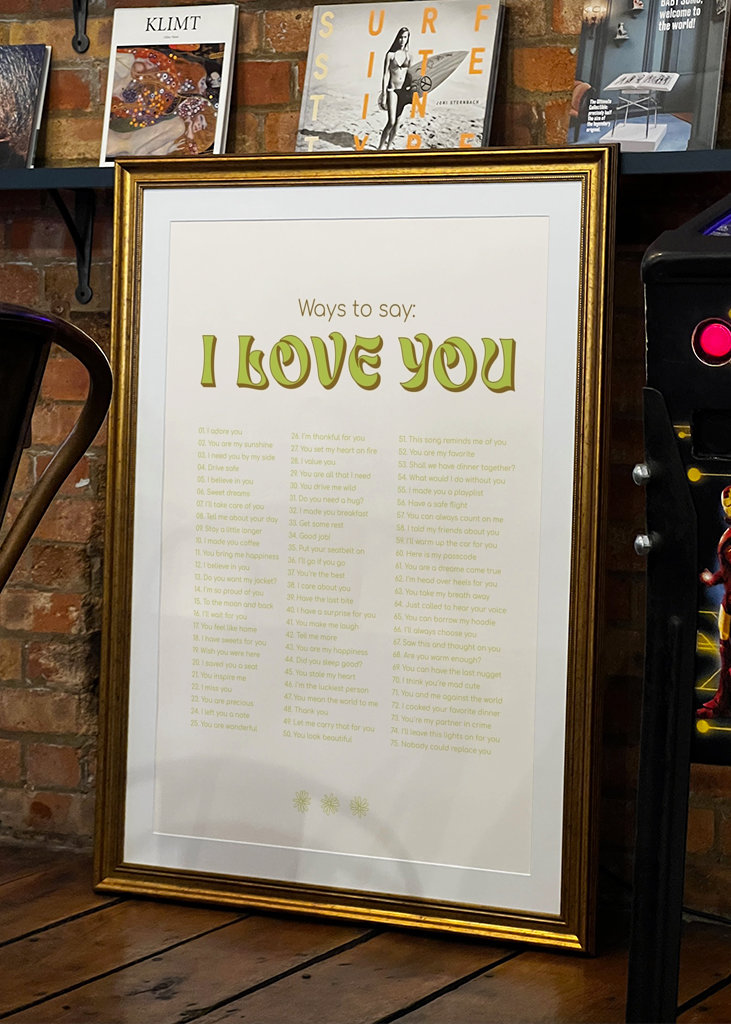 KLIMT
SURF
SITE
TIN
TYPE
JONI STERNBACH
BABY SUMO,
welcome to
the world!
The Ultimate
Collectible:
precisely half
the size of
the legendary
original.
Ways to say:
I LOVE YOU
01. I adore you
02. You are my sunshine
03. I need you by my side
04. Drive safe
05. I believe in you
06. Sweet dreams
07. I'll take care of you
08. Tell me about your day
09. Stay a little longer
10. I made you coffee
11. You bring me happiness
12. I believe in you
13. Do you want my jacket?
14. I'm so proud of you
15. To the moon and back
16. I'll wait for you
17. You feel like home
18. I have sweets for you
19. Wish you were here
20. I saved you a seat
21. You inspire me
22. I miss you
23. You are precious
24. I left you a note
25. You are wonderful
26. I'm thankful for you
27. You set my heart on fire
28. I value you
29. You are all that I need
30. You drive me wild
31. Do you need a hug?
32. I made you breakfast
33. Get some rest
34. Good job!
35. Put your seatbelt on
36. I'll go if you go
37. You're the best
38. I care about you
39. Have the last bite
40. I have a surprise for you
41. You make me laugh
42. Tell me more
43. You are my happiness
44. Did you sleep good?
45. You stole my heart
46. I'm the luckiest person
47. You mean the world to me
48. Thank you
49. Let me carry that for you
50. You look beautiful
51. This song reminds me of you
52. You are my favorite
53. Shall we have dinner together?
54. What would I do without you
55. I made you a playlist
56. Have a safe flight
57. You can always count on me
58. I told my friends about you
59. I'll warm up the car for you
60. Here is my passcode
61. You are a dreame come true
62. I'm head over heels for you
63. You take my breath away
64. Just called to hear your voice
65. You can borrow my hoodie
66. I'll always choose you
67. Saw this and thought on you
68. Are you warm enough?
69. You can have the last nugget
70. I think you're mad cute
71. You and me against the world
72. I cooked your favorite dinner
73. You're my partner in crime
74. I'll leave this lights on for you
75. Nobody could replace you